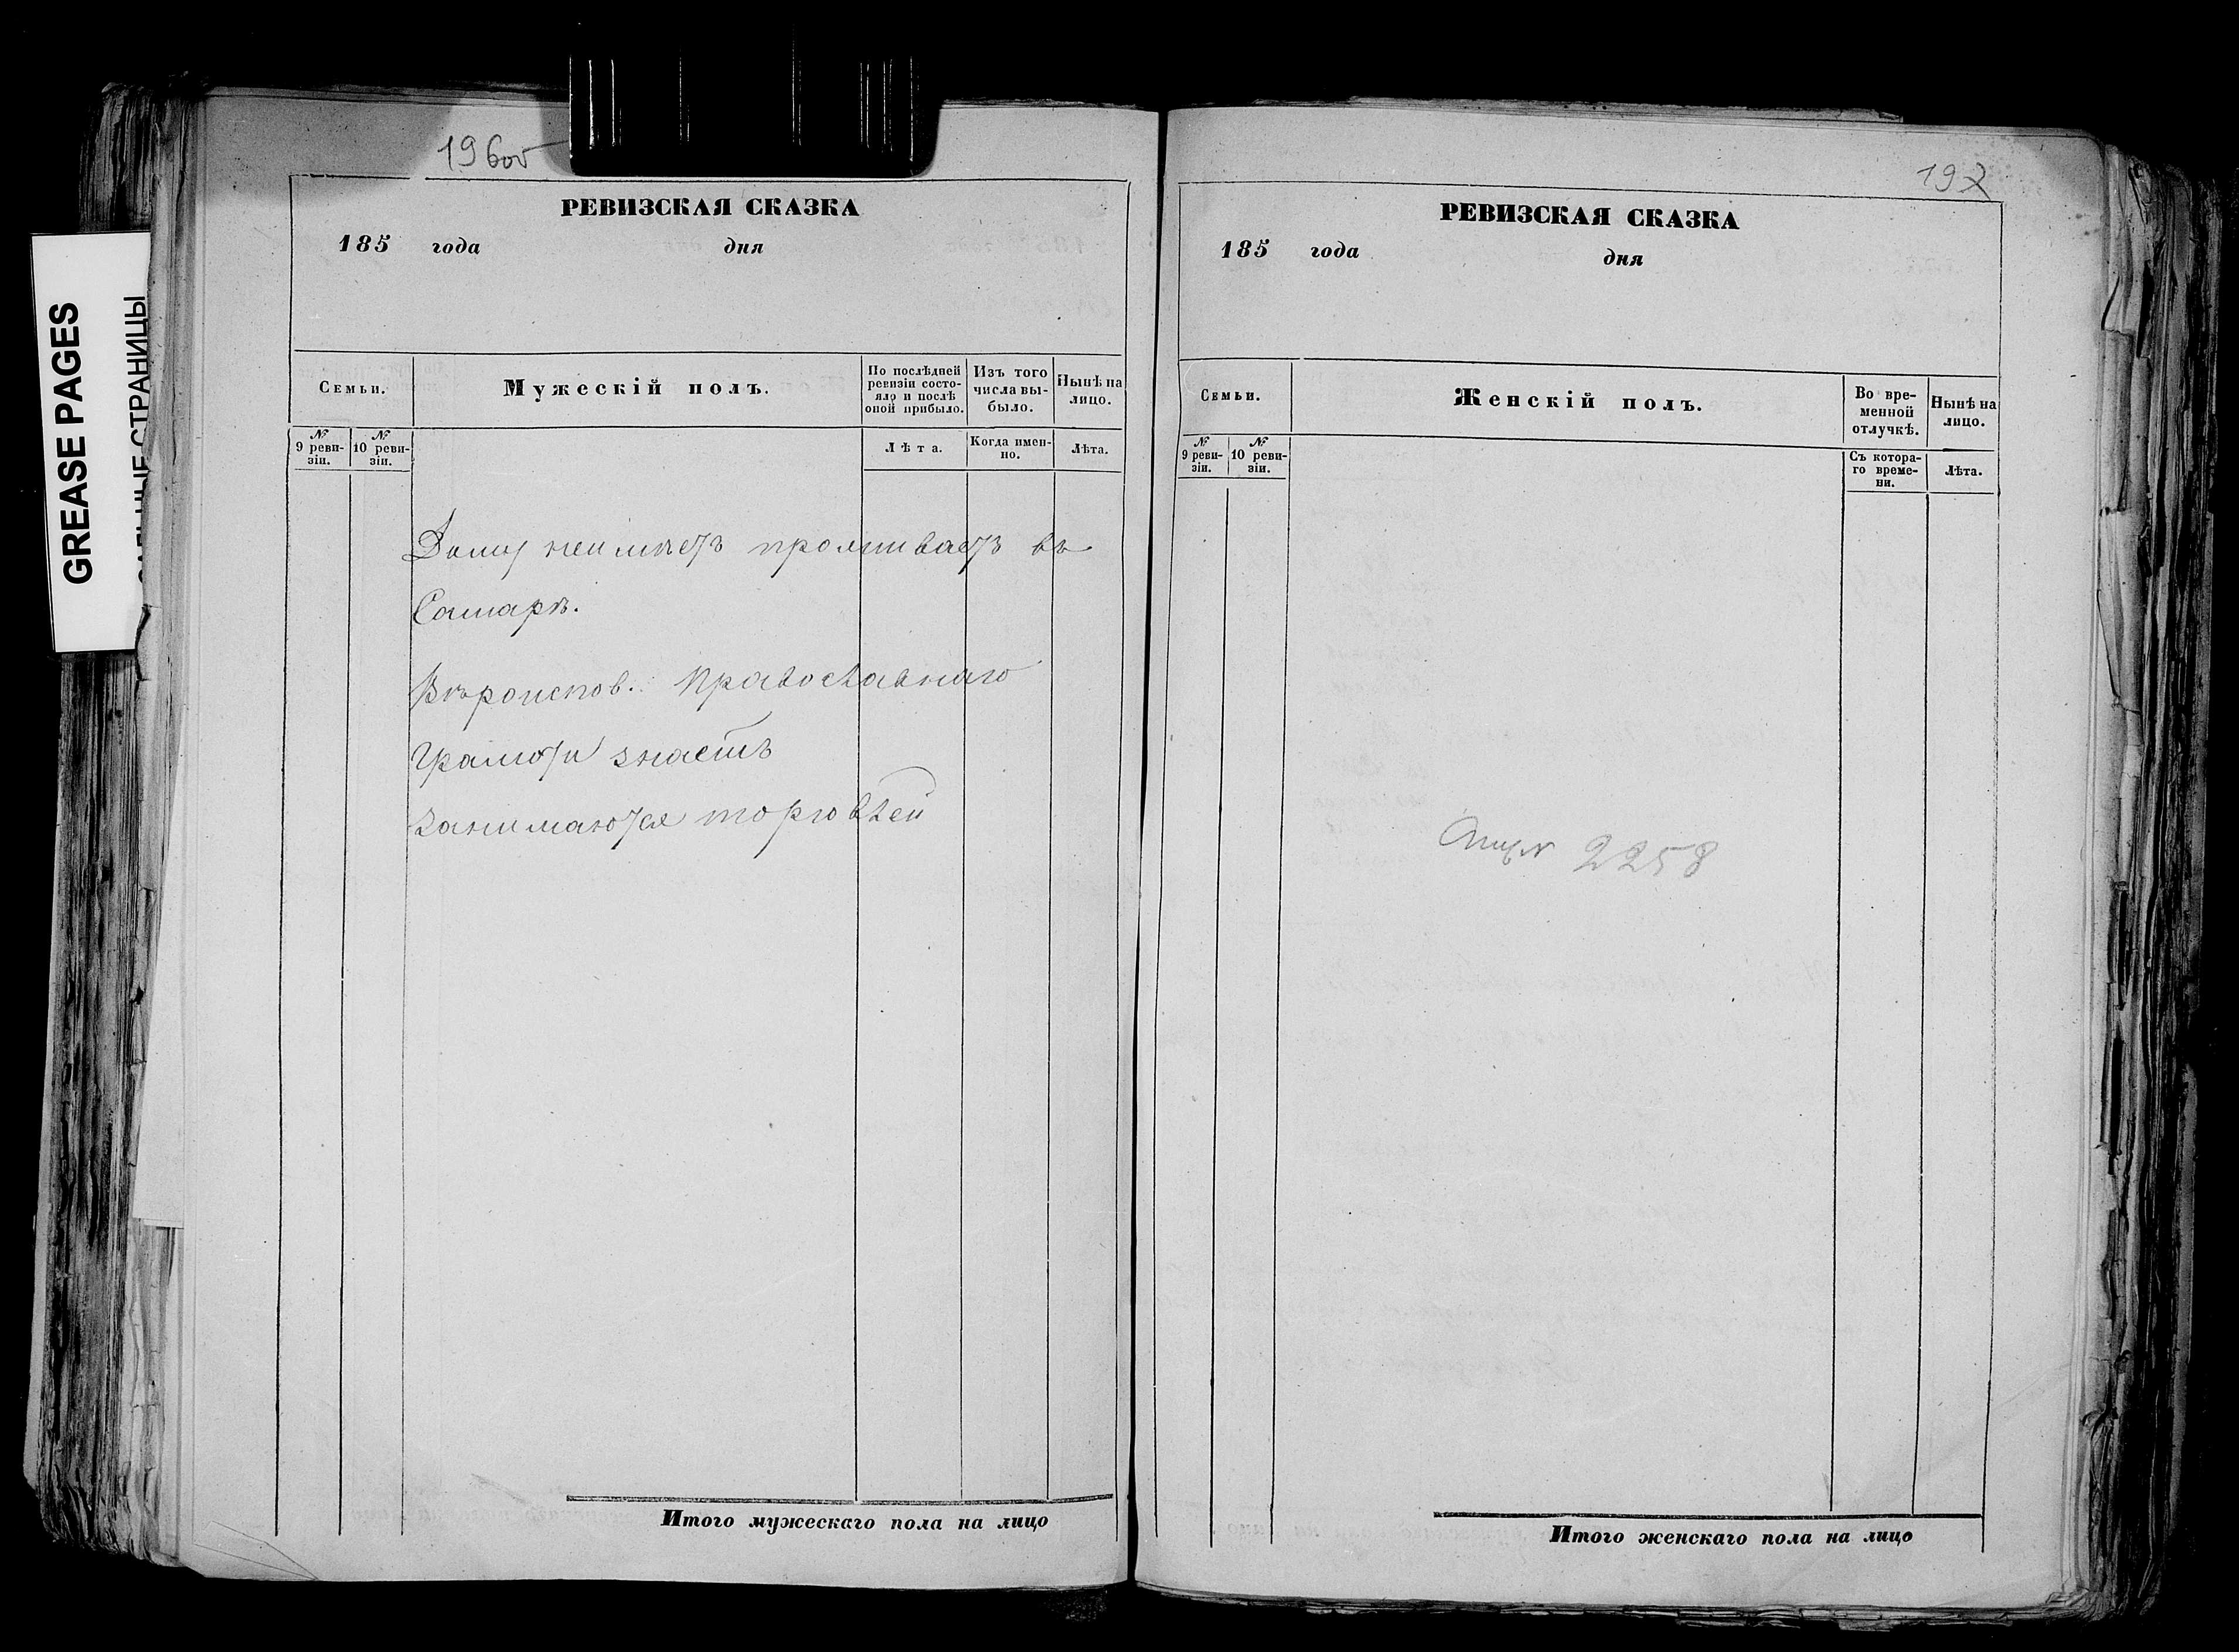 GREASE PAGES
САЛЬНЫЕ СТРАНИЦЫ
196об
РЕВИЗСКАЯ СКАЗКА
185 года дня
Семьи.
Мужескій полъ.
По послѣдней ревизіи состо-
яло и послѣ оной прибыло.
Изъ того числа вы-
было.
Нынѣ на лицо.
№ 9 реви-
зіи.
№ 10 реви-
зіи.
Лѣта.
Когда имен-
но.
Лѣта.
Дому неимѣетъ проживаетъ въ
Самарѣ.
Вѣроиспов. православнаго
Грамоти знаетъ
Занимаются торговлей
Итого мужескаго пола на лицо
197
РЕВИЗСКАЯ СКАЗКА
185 года дня
Семьи.
Женскій полъ.
Во вре-
менной
отлучкѣ.
Нынѣ на
лицо.
№ 9 реви-
зіи.
№ 10 реви-
зіи.
Съ котора-
го време-
ни.
Лѣта.
2258
Итого женскаго пола на лицо